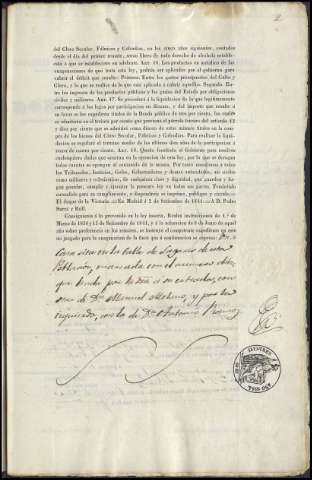 2
del Clero Secular, Fábricas y Cofradías, en los cinco años siguientes, contados
desde el dia del primer remate, serán libres de todo derecho de alcabala estable-
cido ó que se estableciere en adelante. Art. 16. Los productos en metálico de las
enagenaciones de que trata esta ley, podrán ser aplicados por el gobierno para
cubrir el déficit que resulte: Primero. Entre los gastos presupuestos del Culto y
Clero, y lo que se realice de lo que está aplicado á cubrir aquellos. Segundo. En-
tre los ingresos de los productos públicos y los gastos del Estado por obligaciones
civiles y militares. Art. 17. Se procederá á la liquidacion de lo que legítimamente
corresponde á los legos por participacion en diezmos, y del importe que resulte á
su favor se les espedirán títulos de la Deuda pública de tres por ciento, los cuales
se admitirán en el
y diez por ciento que se admiten como dinero de estos mismos títulos en la compra
de los bienes del Clero Secular, Fábricas y Cofradías. Para realizar la liquida-
cion se regulará el término medio de los últimos diez años de la participacion á
razon de cuatro por ciento. Art. 18. Queda facultado el Gobierno para resolver
cualesquiera dudas que ocurran en la ejecucion de esta ley, por la que se derogan
todas cuantas se opongan al contenido de la misma. Por tanto mandamos á todos
los Tribunales, Justicias, Gefes, Gobernadores y demas autoridades, así civiles
como militares y eclesiásticas, de cualquiera clase y dignidad, que guarden y ha-
gan guardar, cumplir y ejecutar la presente ley en todas sus partes. Tendréislo
entendido para su cumplimiento, y dispondréis se imprima, publique y circule.=
El duque de la Victoria.=En Madrid á 2 de Setiembre de 1841.=A D. Pedro
Surrá y Rull.
Consiguiente á lo prevenido en la ley inserta, Reales instrucciones de 1.º de
Marzo de 1836 y 15 de Setiembre de 1841, y á la aclaratoria de 9 de Junio de aquel
año sobre pertenencia de remates, se instruyó el competente espediente en es-
te juzgado para la enagenacion de la finca que á continuacion se espresa: Una
Casa sita en la Calle de
Poblacion, marcada con el número diez,
que linda por la
sa de Dn. Manuel Molina, y por la
izquierda, con la de Dn. Antonio